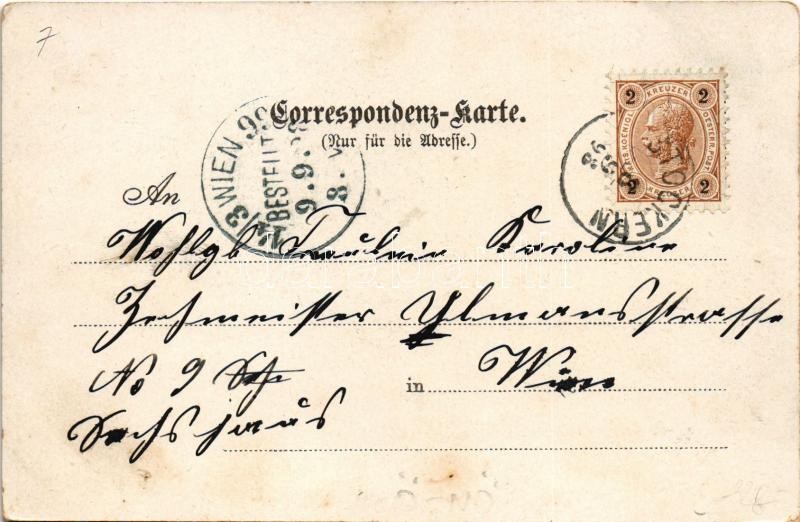 7
Correspondenz-Karte.
(Nur für die Adresse.)
2 KREUZER 2
KAIS. KOENIGL. OESTERR. POST
2 KREUZER 2
STOCKERN
98
WIEN
BESTELLT
9.9.98
8. V
An
Wohlgb Fräulein Karoline
Zehmeister Ylmansstrasse
No 9
in Wien
Sachshaus